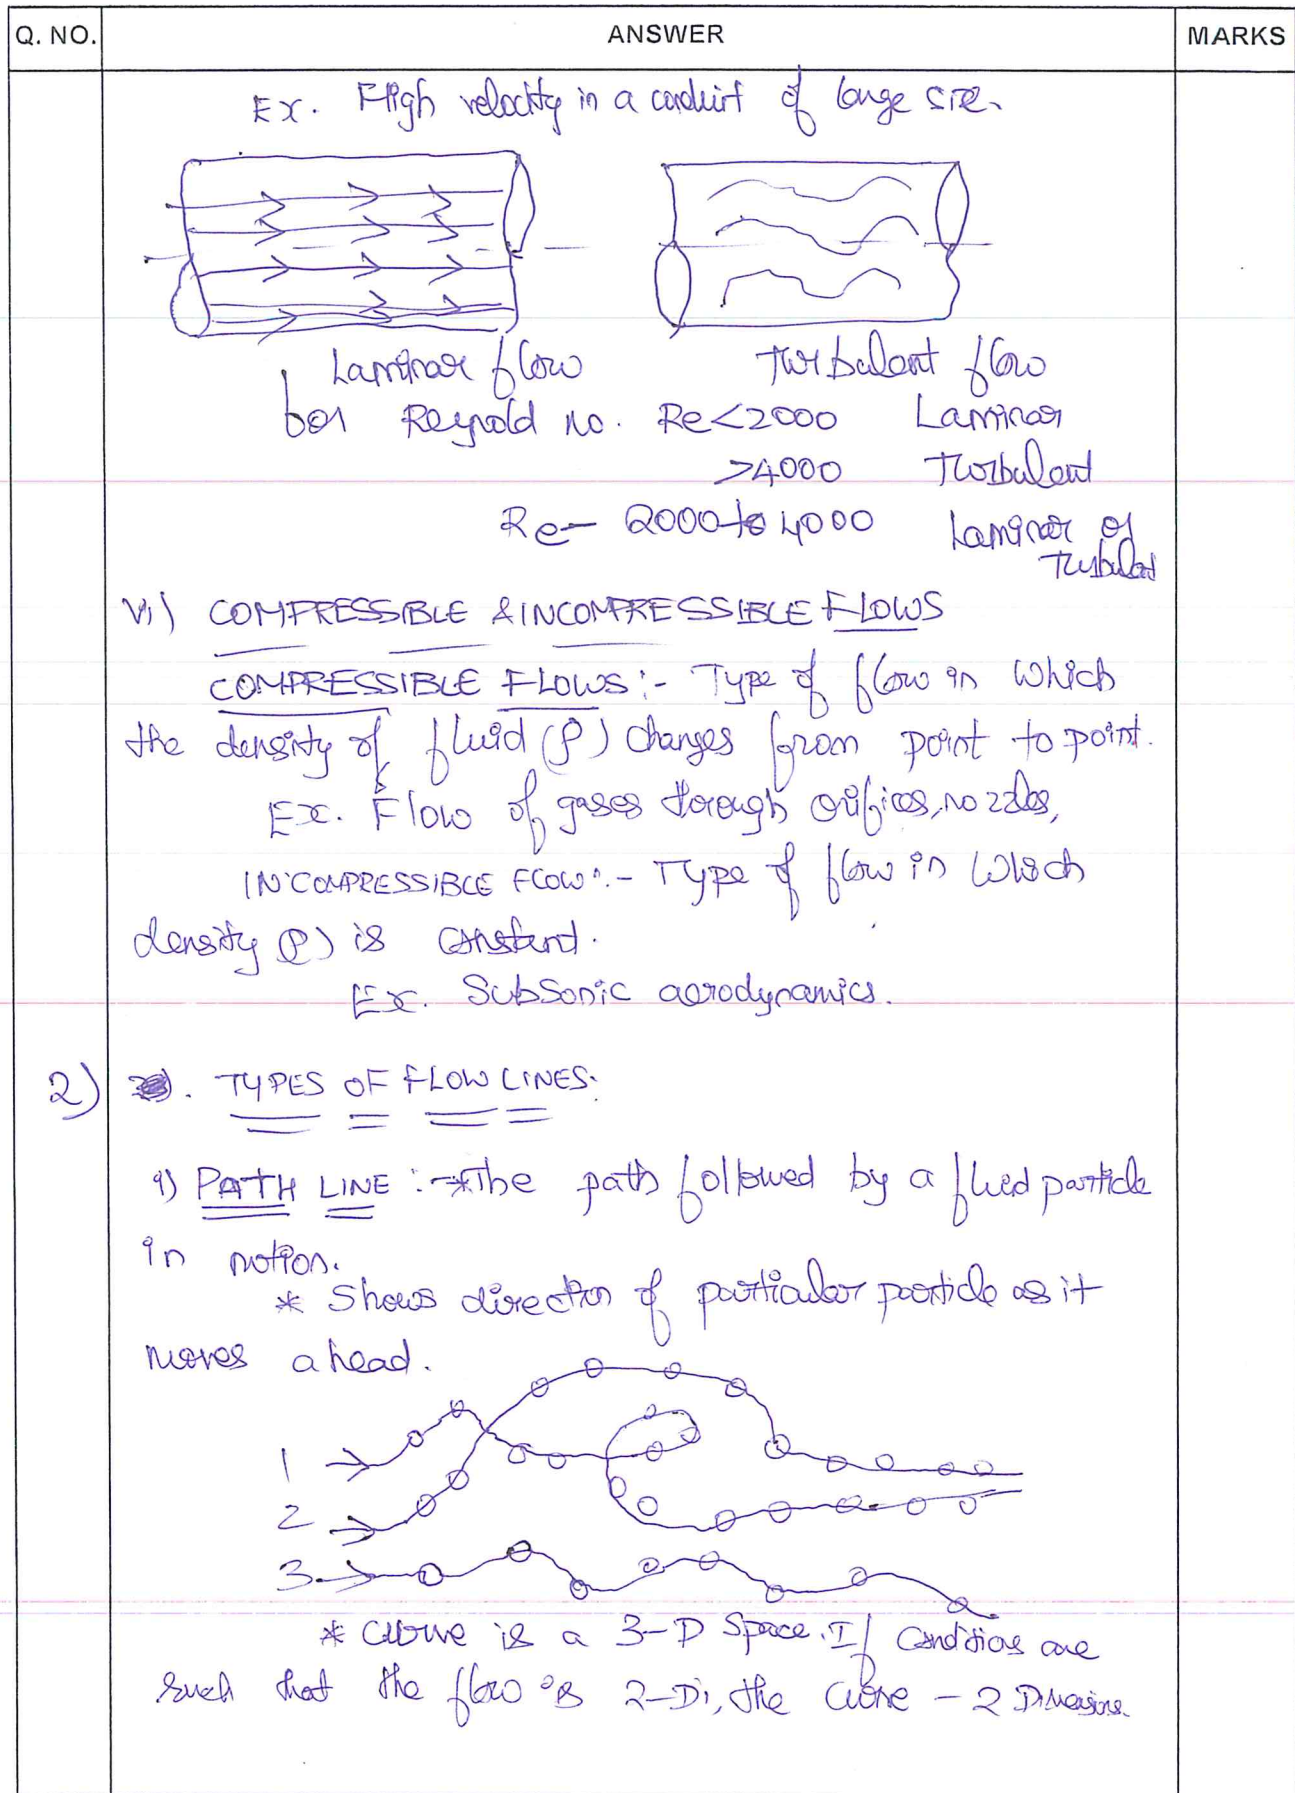 Q. NO. ANSWER MARKS
Ex. High velocity in a conduit of large size.
Laminar flow Turbulent flow
for Reynold no. Re<2000 Laminar
>4000 Turbulent
Re- 2000 to 4000 Laminar or
Turbulent
vi) COMPRESSIBLE & INCOMPRESSIBLE FLOWS
COMPRESSIBLE FLOWS :- Type of flow in which
the density of fluid (ρ) changes from point to point.
Ex. Flow of gases through orifices, nozzles,
INCOMPRESSIBLE FLOW :- Type of flow in which
density (ρ) is constant.
Ex. Subsonic aerodynamics.
2) . TYPES OF FLOW LINES:
i) PATH LINE :- *The path followed by a fluid particle
in motion.
* Shows direction of particular particle as it
moves ahead.
1
2
3
* Curve is a 3-D Space. If conditions are
such that the flow is 2-D, the curve - 2 Dimensions.